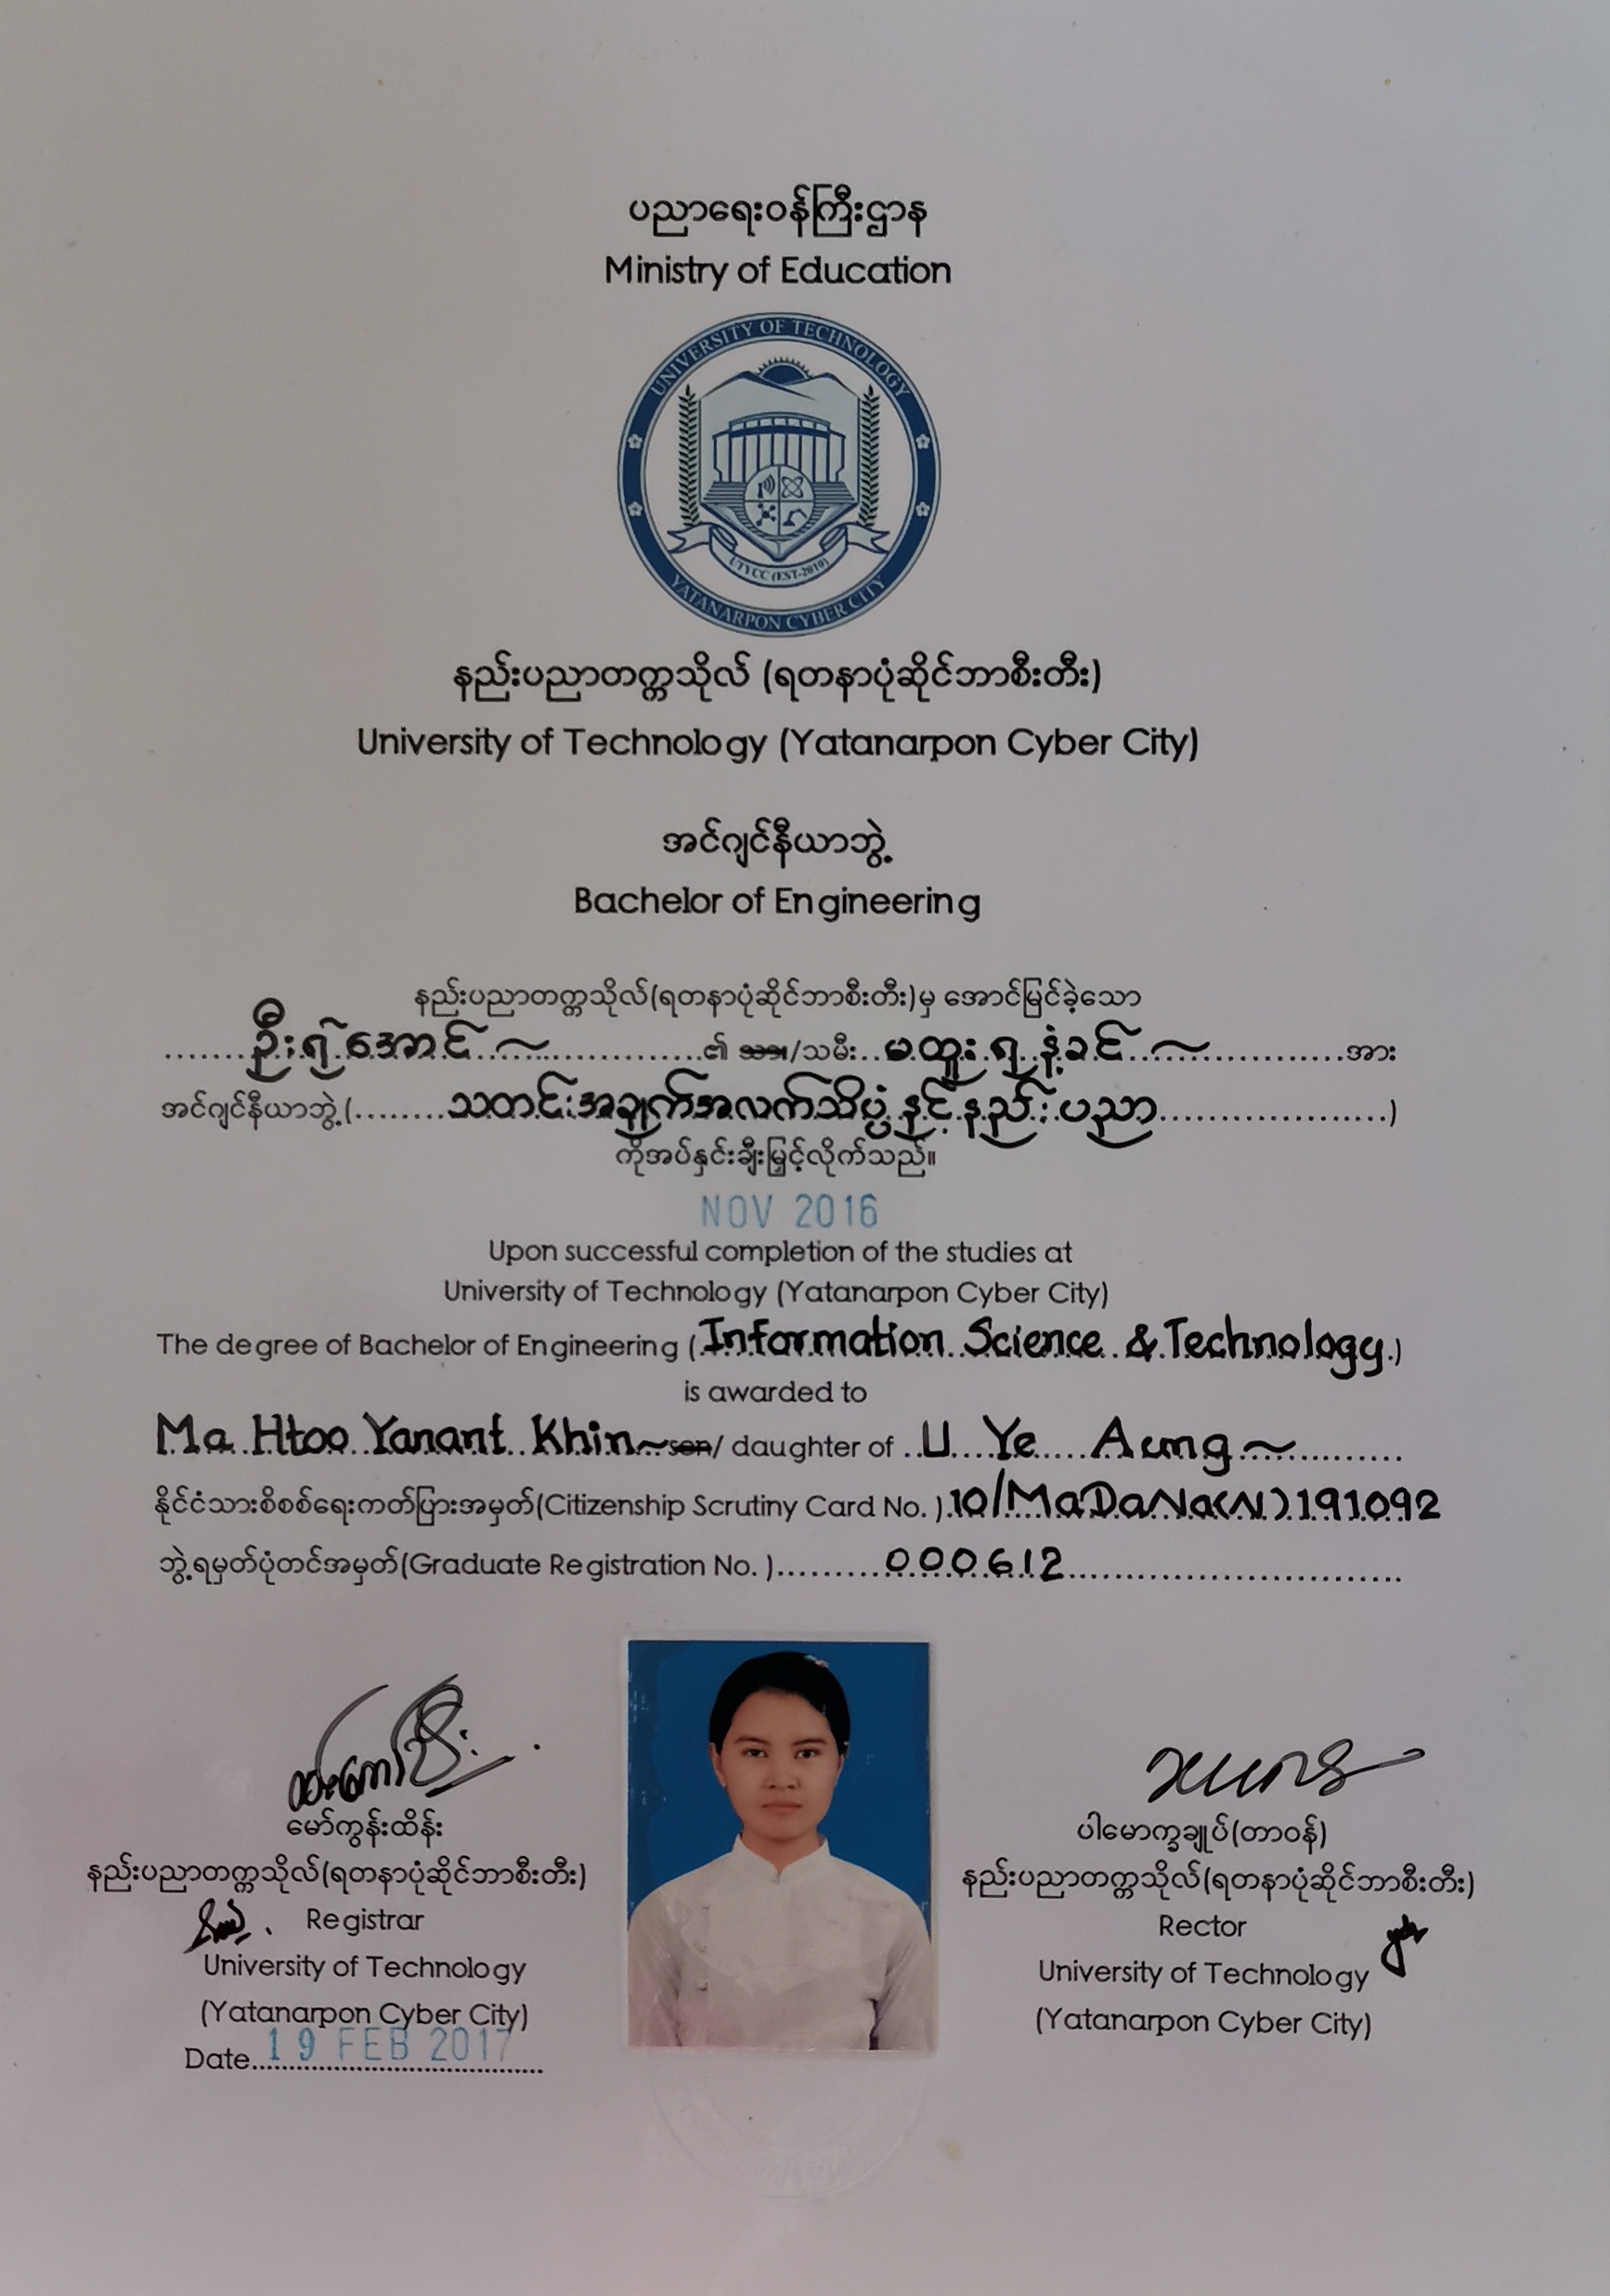 ပညာရေးဝန်ကြီးဌာန
Ministry of Education
UNIVERSITY OF TECHNOLOGY
UTYCC (EST-2010)
YATANARPON CYBER CITY
နည်းပညာတက္ကသိုလ် (ရတနာပုံဆိုင်ဘာစီးတီး)
University of Technology (Yatanarpon Cyber City)
အင်ဂျင်နီယာဘွဲ့
Bachelor of Engineering
နည်းပညာတက္ကသိုလ်(ရတနာပုံဆိုင်ဘာစီးတီး)မှ အောင်မြင်ခဲ့သော
........ဦးရဲအောင်~..............၏ သား/သမီး..မထူးရနံ့ခင်~..............အား
အင်ဂျင်နီယာဘွဲ့(........သတင်းအချက်အလက်သိပ္ပံနှင့်နည်းပညာ....................)
ကိုအပ်နှင်းချီးမြှင့်လိုက်သည်။
NOV 2016
Upon successful completion of the studies at
University of Technology (Yatanarpon Cyber City)
The degree of Bachelor of Engineering (Information Science & Technology)
is awarded to
Ma Htoo Yanant Khin~son/ daughter of ..U Ye Aung~............
နိုင်ငံသားစိစစ်ရေးကတ်ပြားအမှတ်(Citizenship Scrutiny Card No. ).10/MaDaNa(N)191092
ဘွဲ့ရမှတ်ပုံတင်အမှတ်(Graduate Registration No. )..........000612..............................
မော်ကွန်းထိန်း
နည်းပညာတက္ကသိုလ်(ရတနာပုံဆိုင်ဘာစီးတီး)
Registrar
University of Technology
(Yatanarpon Cyber City)
Date 19 FEB 2017
ပါမောက္ခချုပ်(တာဝန်)
နည်းပညာတက္ကသိုလ်(ရတနာပုံဆိုင်ဘာစီးတီး)
Rector
University of Technology
(Yatanarpon Cyber City)